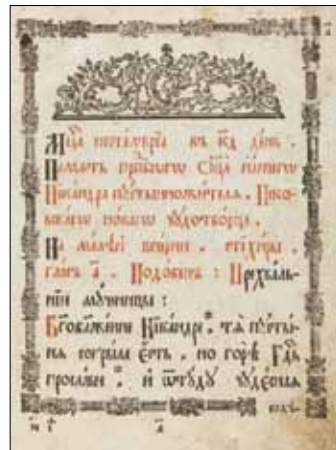 Мц҃а септемврїа въ к҃д де́нь.
Па́мѧть прпⷣбнагѡ Ѻ҃ца на́шегѡ
Ника́ндра пꙋсты́нножи́телѧ. Пско́-
вскагѡ но́вагѡ чꙋдотво́рца.
На ма́лѣй вече́рни. стїхи́ры,
гла́съ а҃. Подо́бенъ: Прехва́ль-
нїи мꙋ́ченицы:
Бг҃обла́женне Ника́ндре. тѧ̀ пꙋсты́-
нѧ е́сть, но го́рѣ Гдⷭ҇ь
и҆ ѿтꙋ́дꙋ чꙋде́сныѧ